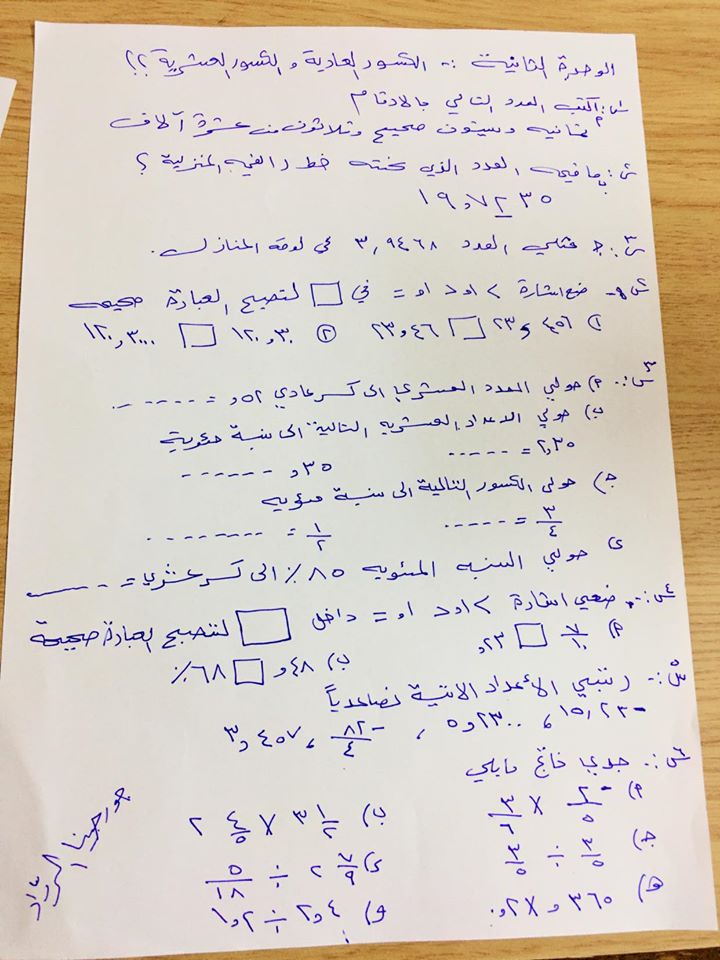 الوحدة الثانية :- الكسور العادية والكسور العشرية ؟؟
س١: أ اكتب العدد التالي بالارقام
ثمانيه وسيتون صحيح وثلاثون من عشرة آلاف
س: ب ما قيمة العدد الذي تحته خط والقيمة المنزلية ؟
١٩,٧٢٣٥
س: ج مثلي العدد ٣,٩٤٦٨ في لوحة المنازل.
ضع اشارة > او < او = في □ لتصبح العبارة صحيحه
١) ٢٣,٤٥٦ □ ٢٣,٤٦ ٢) ١٢٠,٣٠ □ ١٢٠,٣٠٠٠
س٣:. أ) حولي العدد العشري الى كسر عادي ٥٢, = ------
ب) حولي الاعداد العشريه التالية الى نسبة مئوية
٢,٣٥ = ----- ٣٥, -------
ج) حولي الكسور التالية الى نسبة مئويه
٣/٤ = ----- ١/٢ = --------
ى حولي النسبه المئويه ٨٥٪ الى كسر عشري = ------
س٤:- ضعي اشارة > او < او = داخل □ لتصبح العبارة صحيحة
أ) ٧/١٠ □ ٢٣, ب) ٤٨, □ ٦٨٪
س٥:- رتبي الأعداد الاتية تصاعدياً
١٥,٢٣٠ ، ٥,٢٣٠٠ ، ٨٢/٤ ، ٣,٤٥٧
س٦:. جدي ناتج مايلي
أ) ٢/٥ × ٣/٦ ب) ٣ ١/٢ × ٢ ٤/٥
ج) ٣/٥ ÷ ٣/٥ د) ٢ ٧/٩ ÷ ٥/١٨
ه) ٣٦٥ و) ٢,٤ ÷ ١,٢
جورجينا